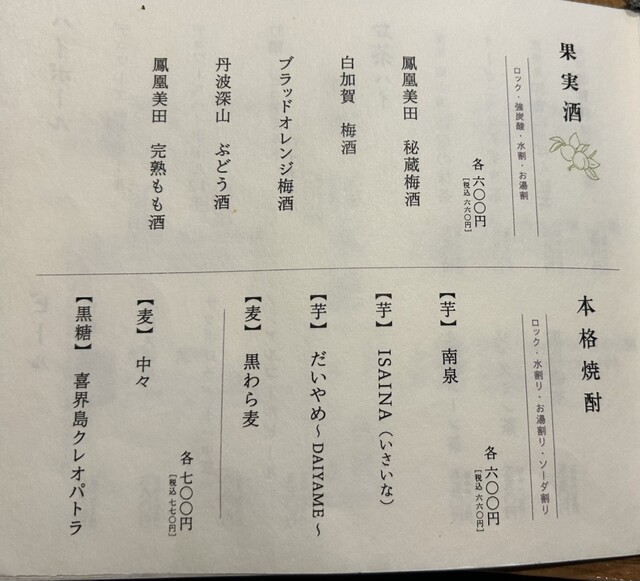 果実酒
ロック・強炭酸・水割・お湯割
各 六〇〇円
［税込 六六〇円］
鳳凰美田 秘蔵梅酒
白加賀 梅酒
ブラッドオレンジ梅酒
丹波深山 ぶどう酒
鳳凰美田 完熟もも酒
本格焼酎
ロック・水割り・お湯割り・ソーダ割り
各 六〇〇円
［税込 六六〇円］
【芋】 南泉
【芋】 ISAINA（いさいな）
【芋】 だいやめ～DAIYAME～
【麦】 黒わら麦
各 七〇〇円
［税込 七七〇円］
【麦】 中々
【黒糖】 喜界島クレオパトラ